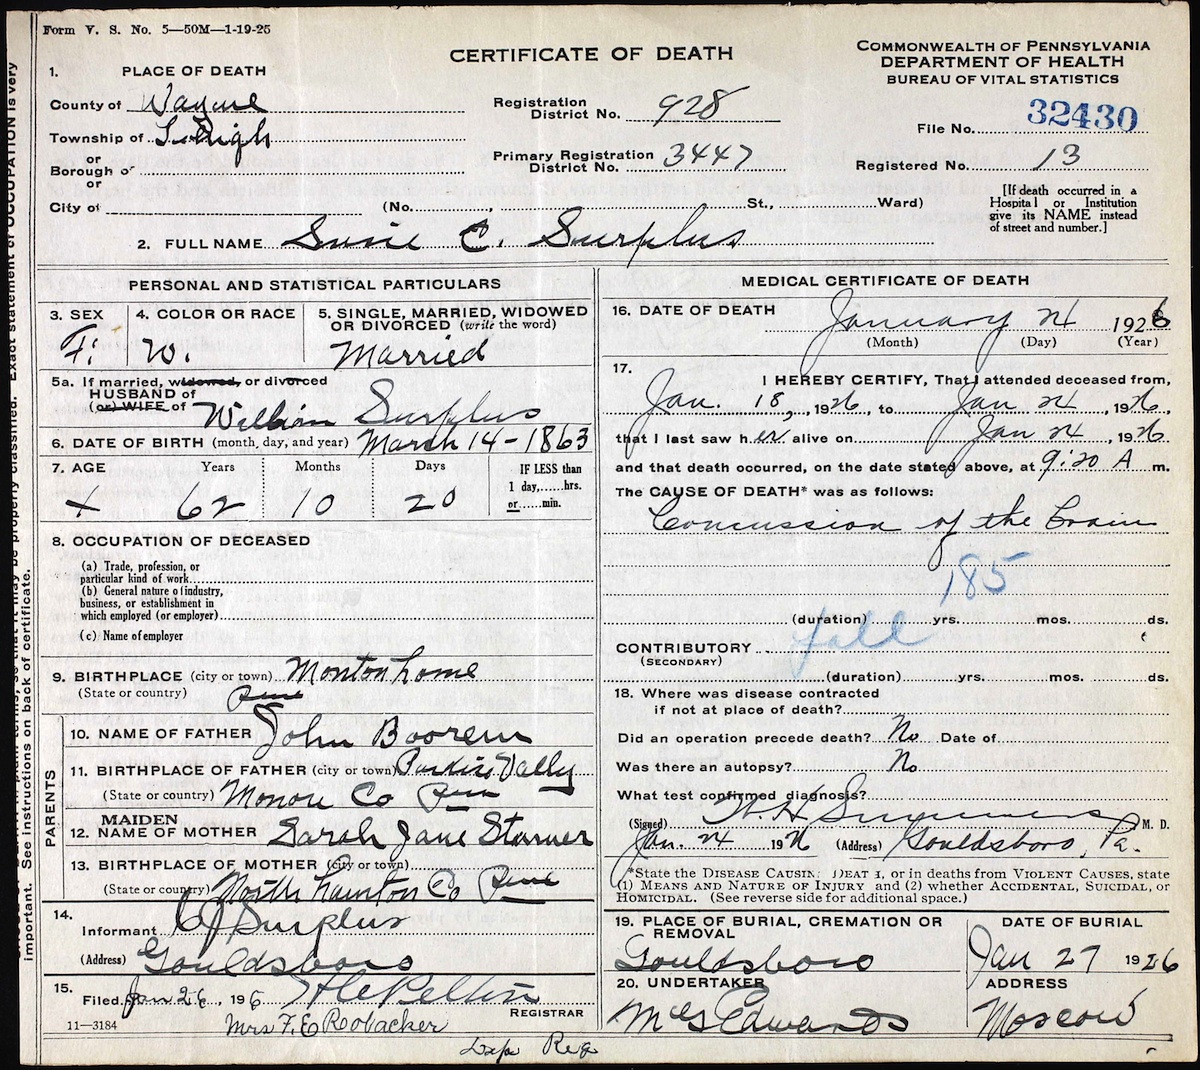 Form V. S. No. 5—50M—1-19-25
CERTIFICATE OF DEATH
COMMONWEALTH OF PENNSYLVANIA
DEPARTMENT OF HEALTH
BUREAU OF VITAL STATISTICS
1. PLACE OF DEATH
County of Wayne
Township of Lehigh
or
Borough of
or
City of
Registration District No. 928
Primary Registration District No. 3447
File No. 32430
Registered No. 13
(No. St., Ward)
[If death occurred in a
Hospital or Institution
give its NAME instead
of street and number.]
2. FULL NAME Susie C. Surplus
PERSONAL AND STATISTICAL PARTICULARS
3. SEX
F.
4. COLOR OR RACE
W.
5. SINGLE, MARRIED, WIDOWED
OR DIVORCED (write the word)
Married
5a. If married, widowed, or divorced
HUSBAND of
(or) WIFE of William Surplus
6. DATE OF BIRTH (month, day, and year) March 14-1863
7. AGE Years Months Days IF LESS than
1 day,......hrs.
or......min.
62 10 20
8. OCCUPATION OF DECEASED
(a) Trade, profession, or
particular kind of work
(b) General nature of industry,
business, or establishment in
which employed (or employer)
(c) Name of employer
9. BIRTHPLACE (city or town) Montonhome
(State or country) Penn
PARENTS
10. NAME OF FATHER John Boorem
11. BIRTHPLACE OF FATHER (city or town) Vally
(State or country) Monore Co Penn
12. MAIDEN
NAME OF MOTHER Sarah Jane Starner
13. BIRTHPLACE OF MOTHER (city or town)
(State or country) North hamton Co Penn
14.
Informant Surplus
(Address) Gouldsboro
15.
Filed Jan 26, 196
REGISTRAR
11—3184
Mrs F. E Robacker
Dep Reg
MEDICAL CERTIFICATE OF DEATH
16. DATE OF DEATH January 24 1926
(Month) (Day) (Year)
17.
I HEREBY CERTIFY, That I attended deceased from,
Jan. 18, 1926, to Jan 24, 1926,
that I last saw h er alive on Jan 24, 1926
and that death occurred, on the date stated above, at 9:20 A m.
The CAUSE OF DEATH* was as follows:
Concussion of the brain
185
(duration) yrs. mos. ds.
CONTRIBUTORY fall
(SECONDARY)
(duration) yrs. mos. ds.
18. Where was disease contracted
if not at place of death?
Did an operation precede death? No Date of
Was there an autopsy? No
What test confirmed diagnosis?
(Signed) M. D.
Jan. 24 1926 (Address) Gouldsboro, Pa.
*State the DISEASE CAUSING DEATH, or in deaths from VIOLENT CAUSES, state
(1) MEANS AND NATURE OF INJURY and (2) whether ACCIDENTAL, SUICIDAL, or
HOMICIDAL. (See reverse side for additional space.)
19. PLACE OF BURIAL, CREMATION OR
REMOVAL
Gouldsboro
DATE OF BURIAL
Jan 27 1926
20. UNDERTAKER
Edwards
ADDRESS
Moscow
may be properly classified. Exact statement of OCCUPATION is very
important. See instructions on back of certificate.